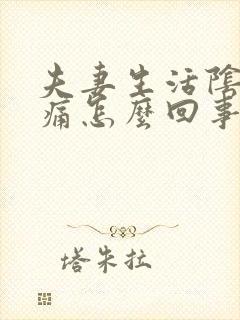 夫妻生活陰
痛怎麼回事
塔朱拉